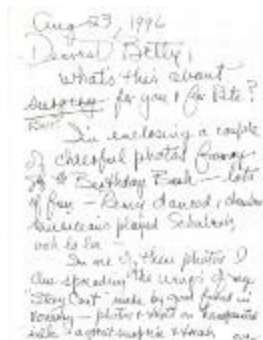 Aug 23, 1996
Dearest Betty,
What's this about
surgery for you & for Pete?
I'm enclosing a couple
of cheerful photos from my
Birthday Bash — lots
of fun — danced, chamber
musicians played Schubert,
ooh la la —
In one of these photos I
am spreading the wings of my
"Story Coat" made by good friend in
— photos & on
silk — a great surprise &